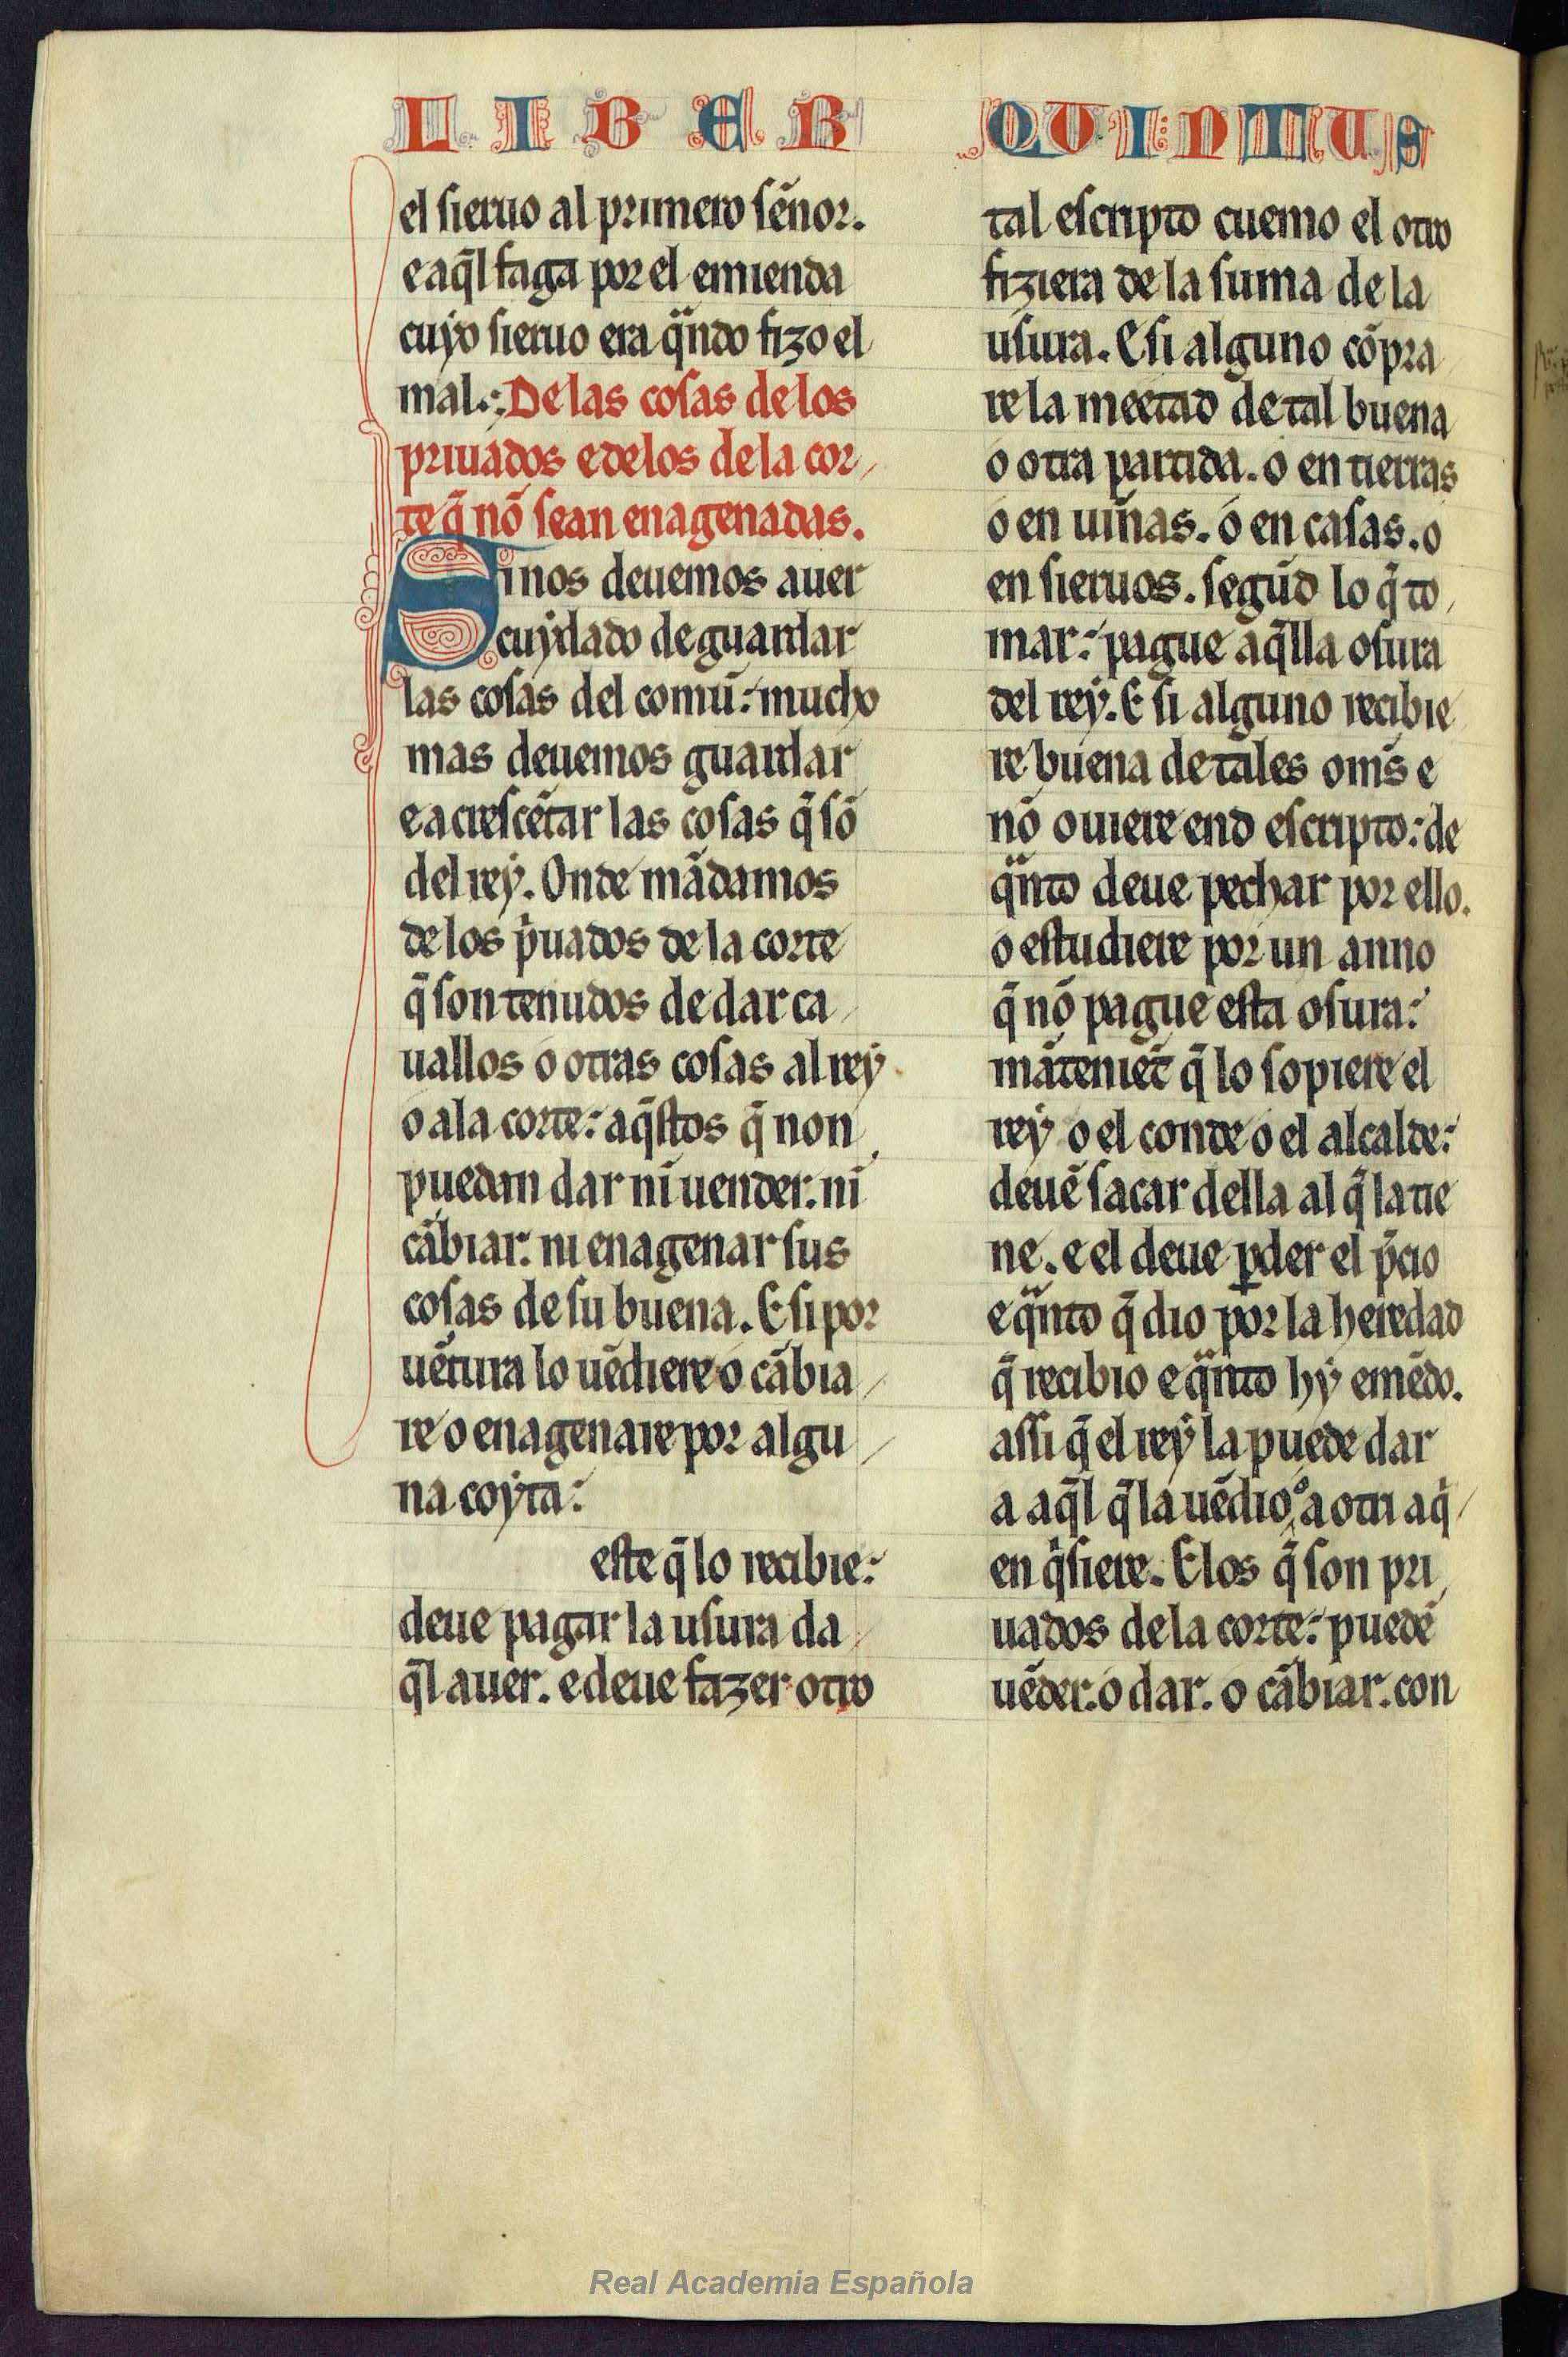 LIBER QUINTUS
el sieruo al primero sẽnor.
e aq̃l faga por el emienda
cuyo sieruo era q̈ndo fizo el
mal.:, De las cosas de los
priuados e de los de la cor/
te q̃ nõ sean enagenadas.
Si nos deuemos auer
cuydado de guardar
las cosas del comũ: mucho
mas deuemos guardar
e acrescẽtar las cosas q̃ sõ
del rey. Onde mãdamos
de los p̃uados de la corte
q̃ son tenudos de dar ca/
uallos o otras cosas al rey
o a la corte: aq̃stos q̃ non
puedan dar nĩ uender. nĩ
cãbiar. ni enagenar sus
cosas de su buena. E si por
uẽtura lo uẽdiere o cãbia/
re o enagenare por algu/
na coyta:
este q̃ lo recibie:
deue pagar la usura da/
q̃l auer. e deue fazer otro
tal escripto cuemo el otro
fiziera de la suma de la
usura. E si alguno cõpra
re la meetad de tal buena
o otra partida. o en tierras
o en uinas. o en casas. o
en sieruos. segũd lo q̃ to/
mar: pague aq̃lla osura
del rey. E si alguno recibie
re buena de tales om̃s e
nõ ouiere end escripto: de
q̈nto deue pechar por ello.
o estudiere por un anno
q̃ nõ pague esta osura:
mãteniẽt q̃ lo sopiere el
rey o el conde o el alcalde:
deuẽ sacar della al q̃ la tie
ne. e el deue ꝑder el p̃cio
e q̈nto q̃ dio por la heredad
q̃ recibio e q̈nto hy emẽdo.
assi q̃ el rey la puede dar
a aq̃l q̃ la uẽdio o a otri a q̃/
en q̃siere. E los q̃ son pri
uados de la corte: puedẽ
uẽder. o dar. o cãbiar. con
Real Academia Española